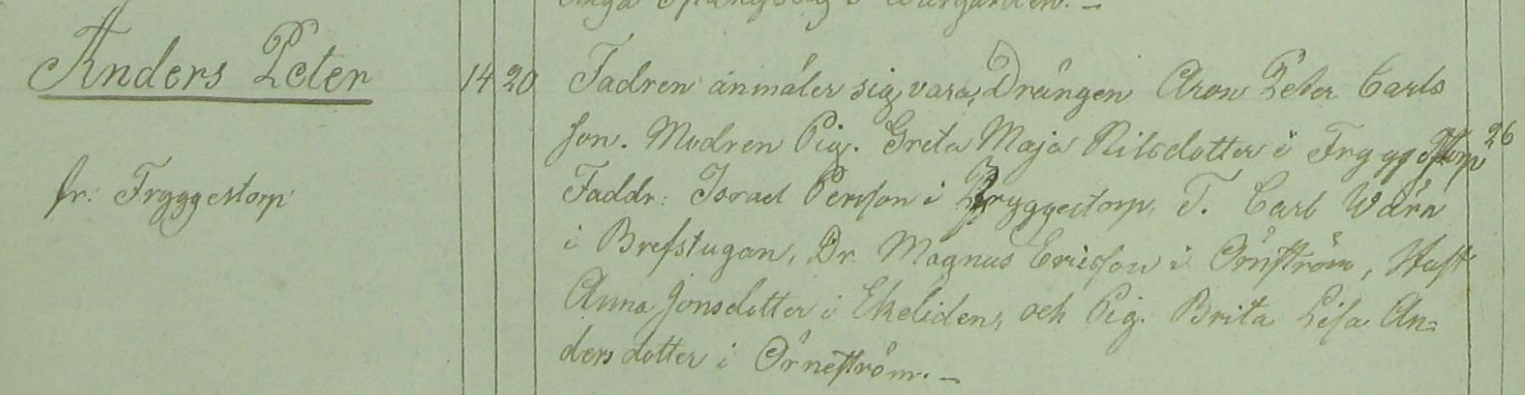 i Wargården. –
Anders Peter 14 20 Fadren anmäler sig vara, Drängen Aron Peter Carls
son. Modren Pig. Greta Maja Nilsdotter i Tryggestorp 26
fr: Tryggestorp Faddr: Israel Persson i Tryggestorp, T. Carl Wärn
i Brefstugan, Dr. Magnus Ericsson i Örnström, Hust
Anna Jonsdotter i Ekeliden, och Pig. Brita Lisa An=
dersdotter i Örneström. –